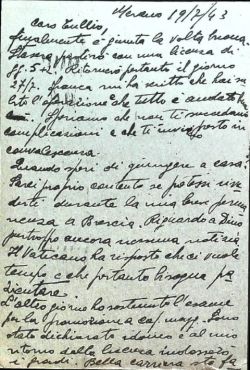 Merano 19/7/43
Caro Tullio,
finalmente è giunta la volta buona.
Stasera partirò con una licenza di
gg. 5+2. Ritornerò pertanto il giorno
27/7. mi ha scritto che hai
l'operazione che tutto è andato
bene. Speriamo che non ti succedano
complicazioni e che ti inviino presto in
convalescenza.
Quando speri di giungere a casa?
Sarei proprio contento se potessi
verti durante la mia breve perma
nenza a Brescia. Riguardo a Dino
purtroppo ancora nessuna notizia
Il Vaticano ha risposto che ci vuole
tempo e che pertanto bisogna pa
zientare.
L'altro giorno ho sostenuto l'esame
per la promozione a cap. magg. Sono
stato dichiarato idoneo e al mio
ritorno dalla licenza indosserò
i gradi. Bella carriera sto fa